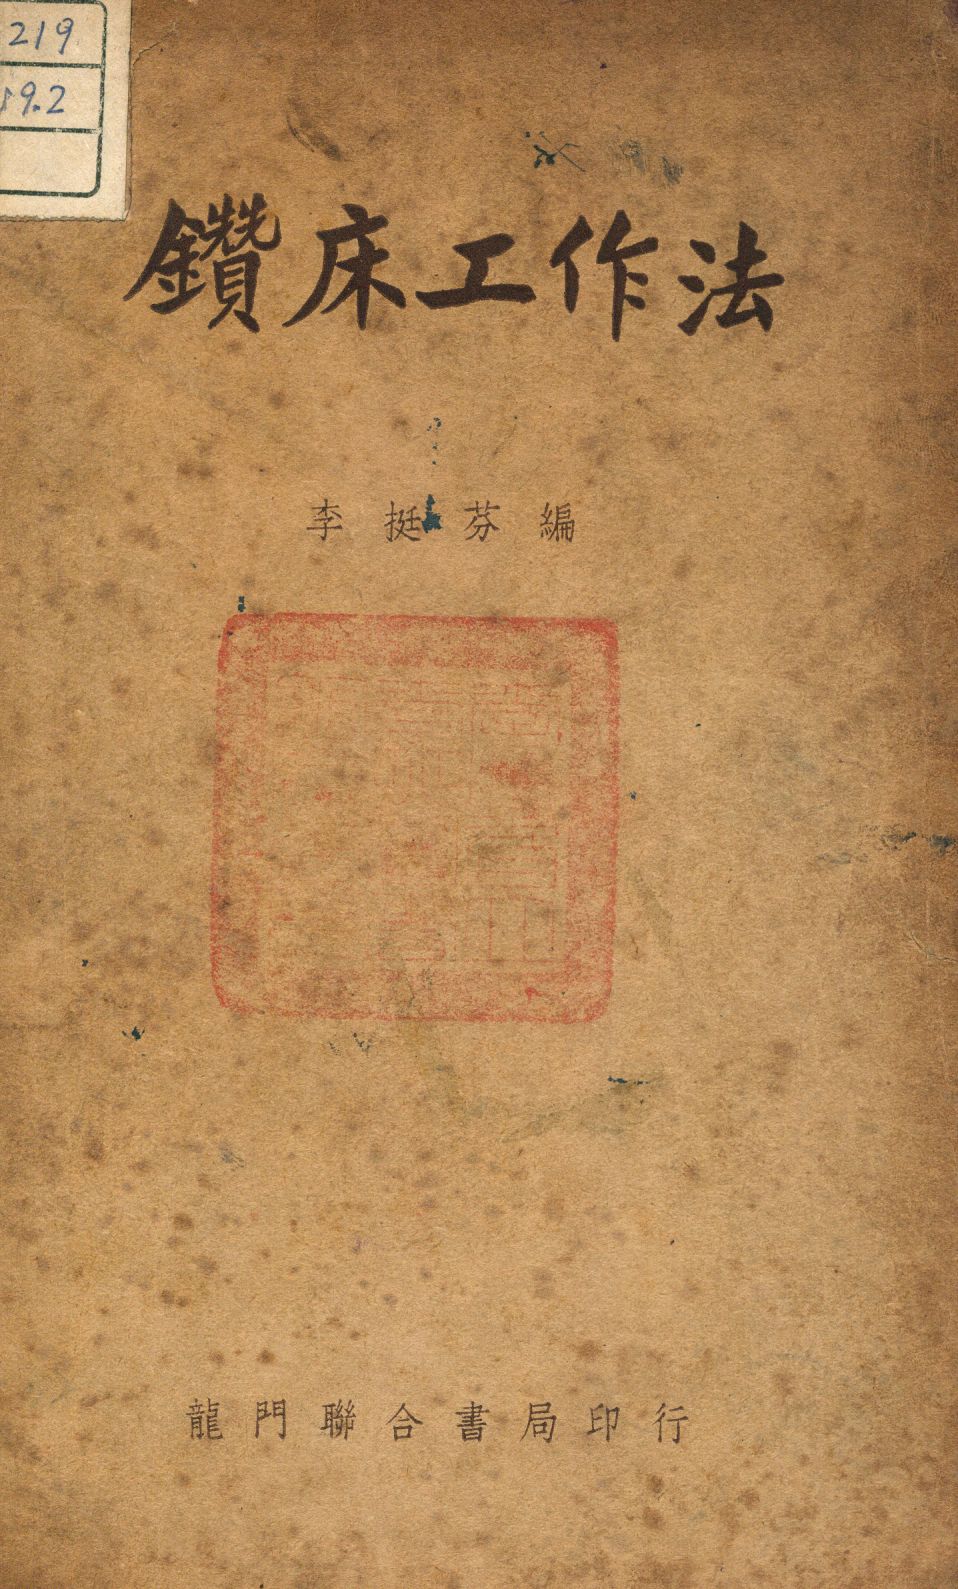 219
9.2
鑽床工作法
李挺芬編
龍門聯合書局印行